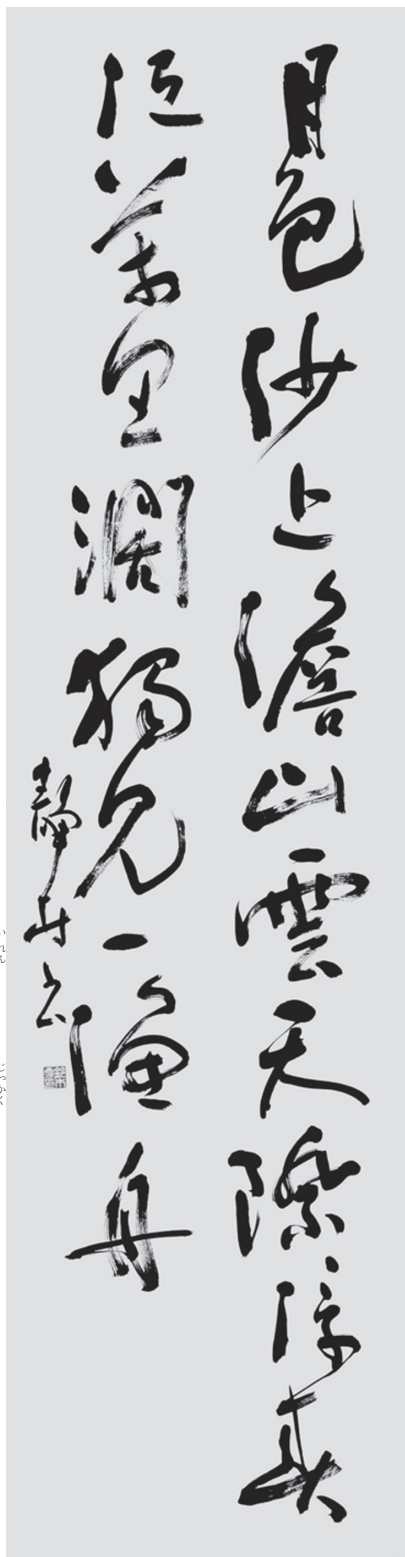 月色沙上澹山雲天際浮春
江萬里濶獨見一漁舟
靜書